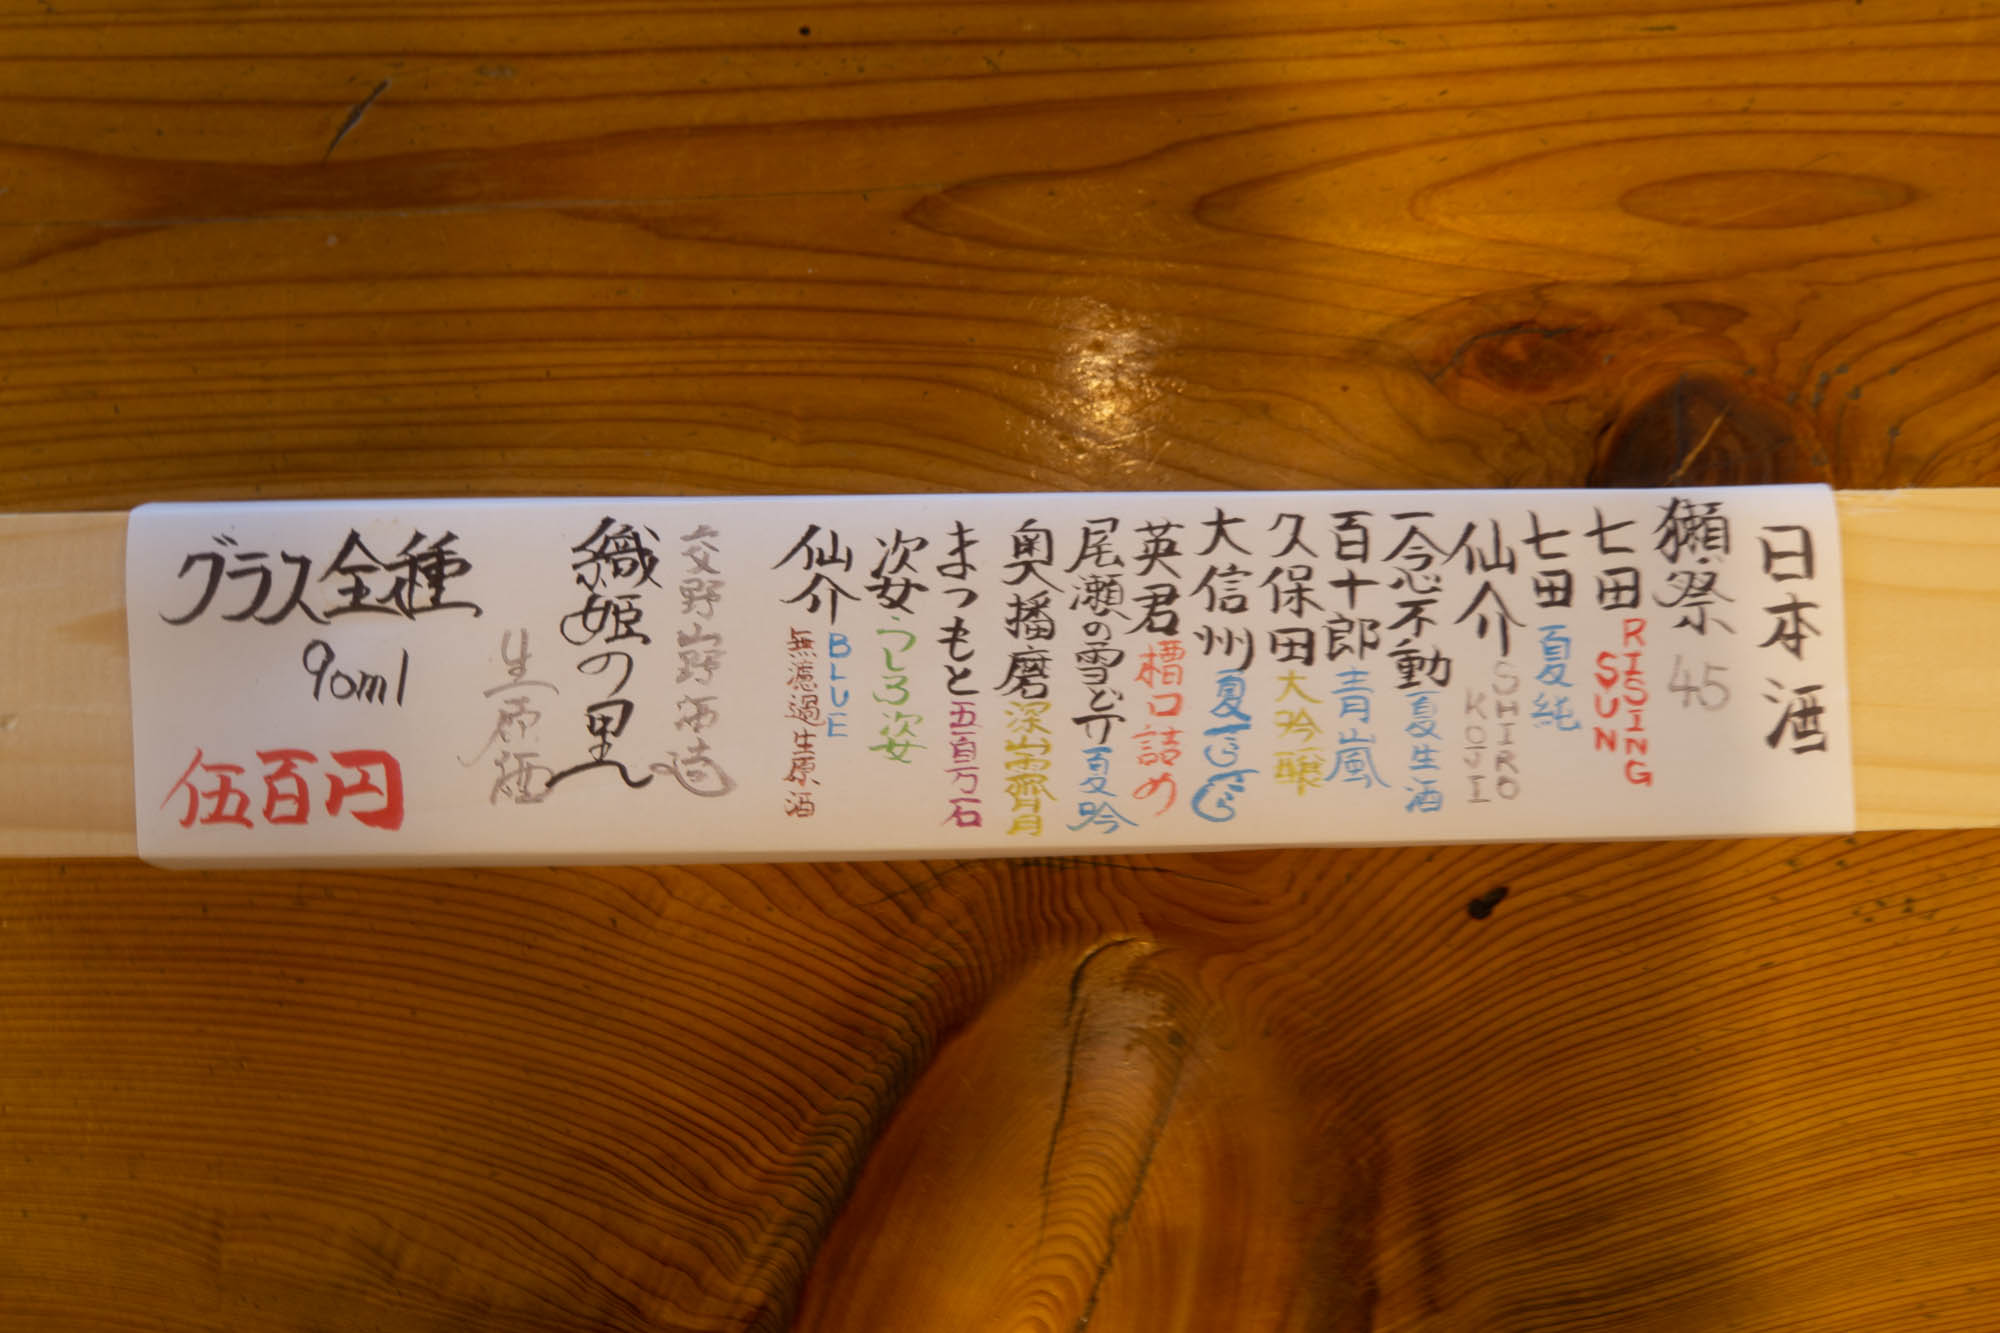 日本酒
獺祭 45
七田 RISING SUN
七田 夏純
仙介 SHIRO KOJI
一念不動 夏生酒
百十郎 青嵐
久保田 大吟醸
大信州 夏
英君 槽口詰め
尾瀬の雪どけ 夏吟
奥播磨 深山霽月
まつもと 五百万石
姿 うしろ姿
仙介 BLUE 無濾過生原酒
交野 山野酒造
織姫の里
生原酒
グラス全種
90ml
伍百円